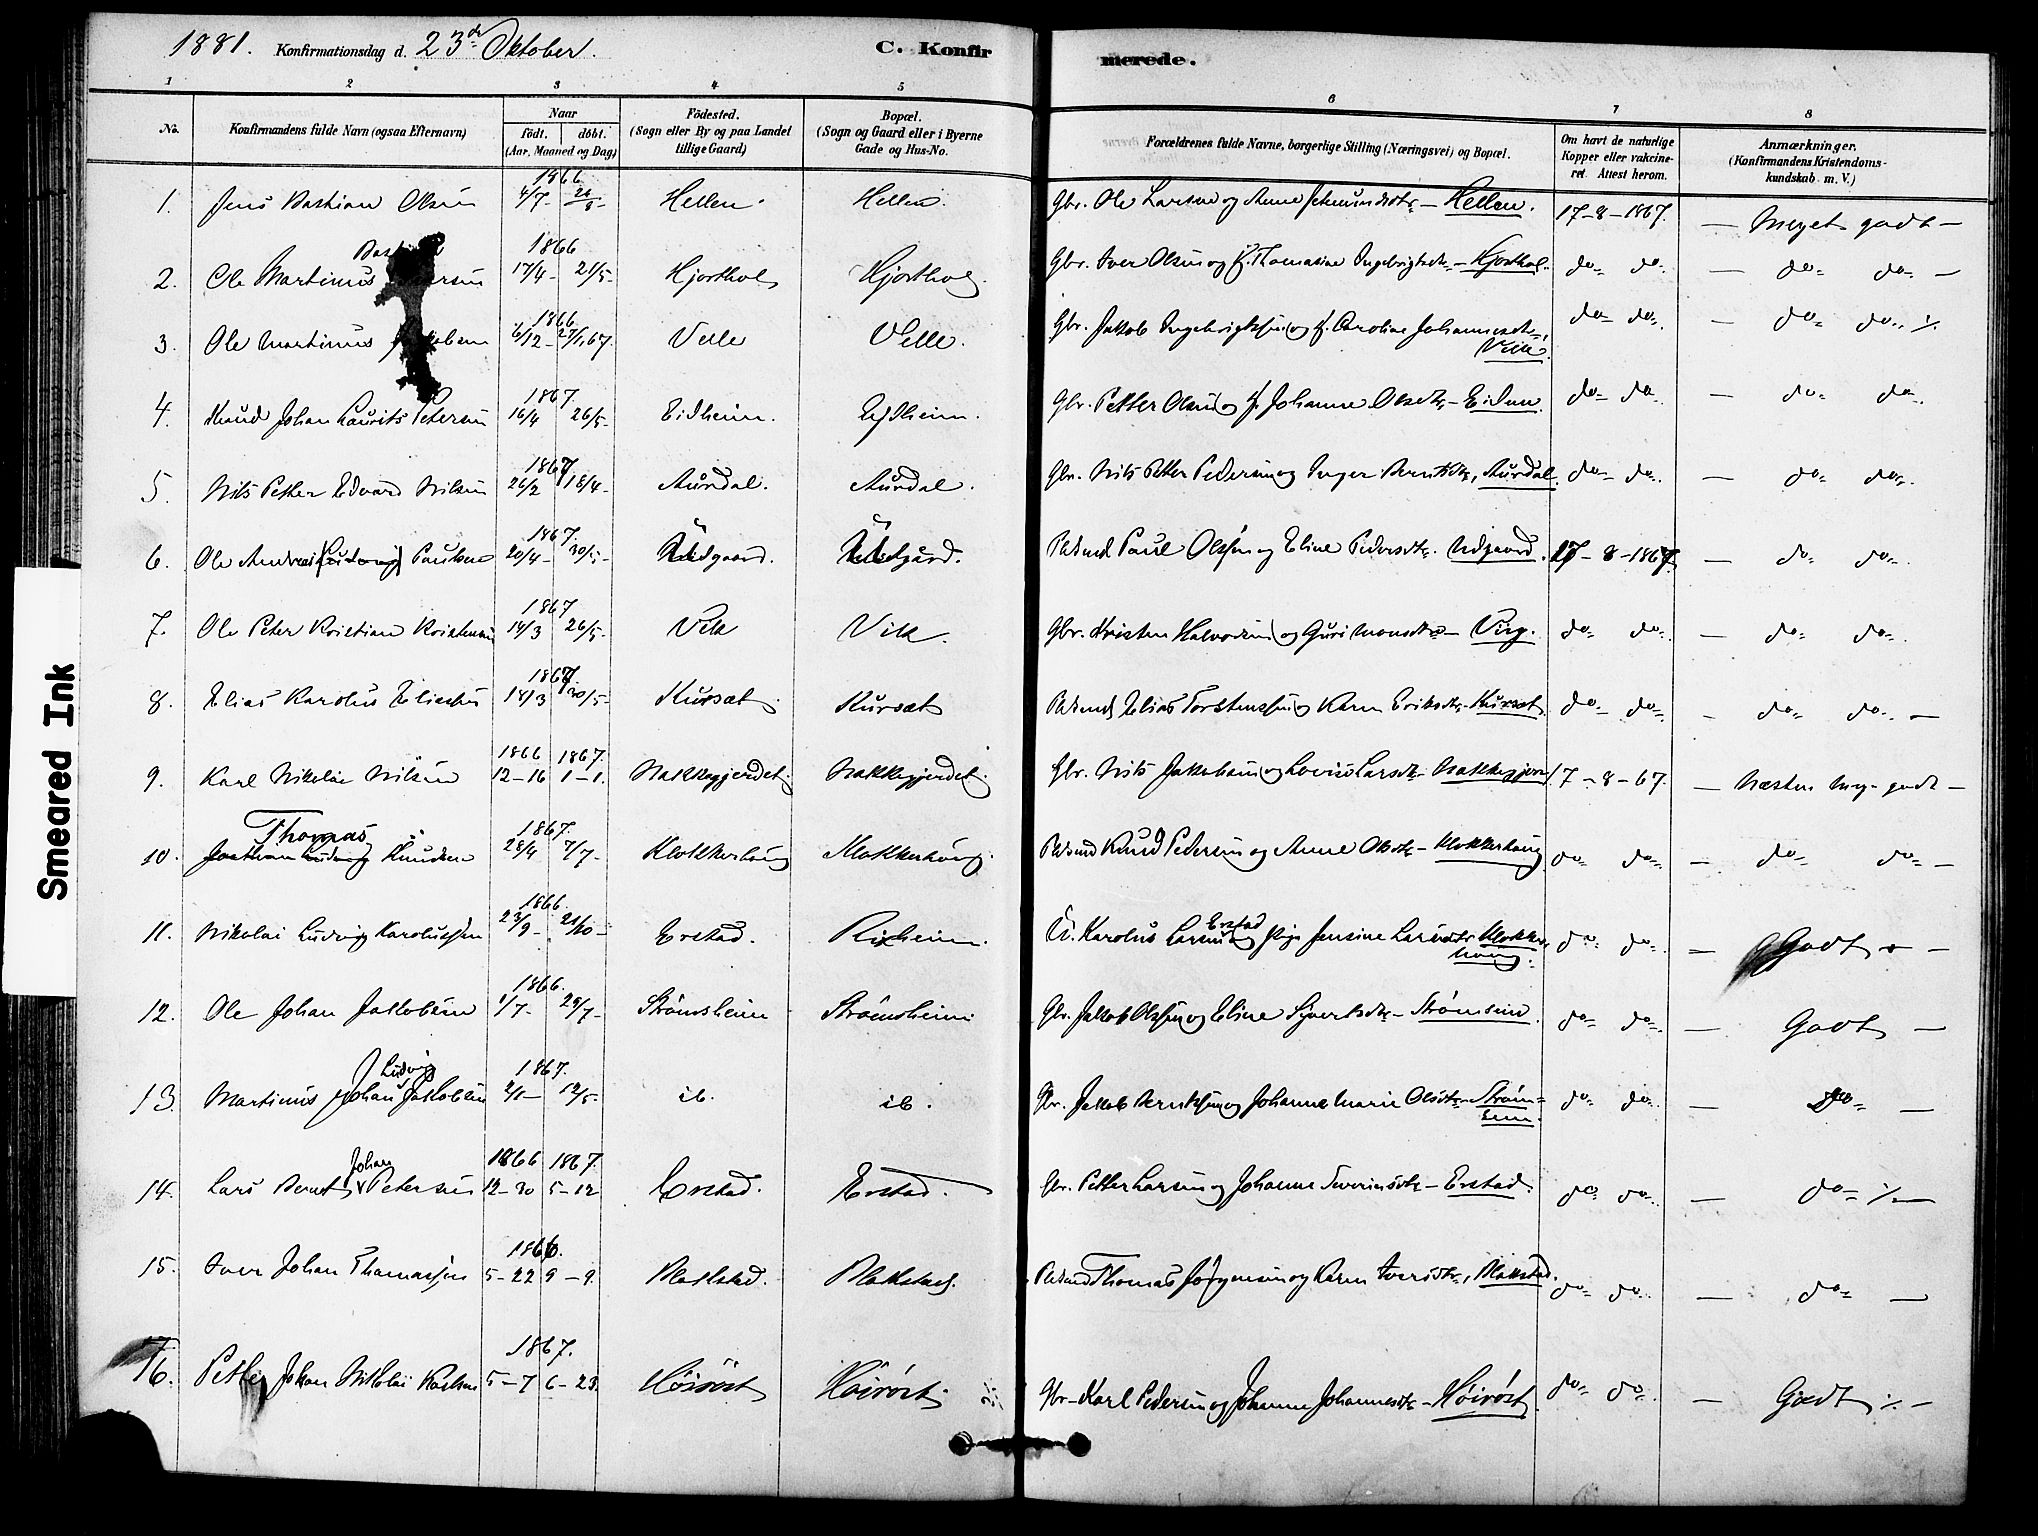 1881. Konfirmationsdag d. 23de Oktober. C. Konfirmerede.
1 2 3 4 5 6 7 8
No. Konfirmandens fulde Navn (ogsaa Efternavn) Naar födt. döbt. (Aar, Maaned og Dag) Födested. (Sogn eller By og paa Landet tillige Gaard) Bopæl. (Sogn og Gaard eller i Byerne Gade og Hus-No. Forældrenes fulde Navne, borgerlige Stilling (Næringsvei) og Bopæl. Om havt de naturlige Kopper eller vakcineret. Attest herom. Anmærkninger. (Konfirmandens Kristendomskundskab m. V.)
1866
1. Jens Bastian Olsen 4/7- Hellen. Hellen. Gbr. Ole Larsen og Anne - Hellen. 17-8-1867. - Meget godt -
1866
2. Ole Martinus 17/4- 21/5- Hjorthol Hjorthol Gbr. Iver Olsen og H. Thomasine Ingebrigtsdtr - Hjorthol. do- do. - do- do. -
1866
3. Ole Martinus 6/12- 27/1,67. Velle Velle. Gbr. Jakob Ingebrigtsen og H. Caroline Johannesdtr, Velle. do- do. - do- do. ./.
1867.
4. Knud Johan Laurits Petersen 16/4 26/5- Eidheim. Ejdheim. Gbr. Petter Olsen og H. Johanne Olsdtr - Eidem. do- do. - do- do.
1867
5. Nils Petter Edvard Nilsen 26/2 18/4- Aurdal. Aurdal. Gbr. Nils Petter Pedersen og Inger Berntsdtr, Aurdal. do- do. - do- do.
1867.
6. Ole Andreas (Ludvig) Paulsen 20/4- 30/5- Paul Olsen og Eline Pedersdtr. Udgaard. 17-8-1867 - do- do.
1867
7. Ole Peter Kristian Kristensen 14/3 26/5- Vik Vik. Gbr. Kristen Halvorsen og Guri Monsdtr - Viig. do- do. - do- do.
1867
8. Elias Karolus Eliassen 14/3 30/5- Kursæt. Kursæt Elias Torstensen og Karen Eriksdtr - Kursæt. do- do. - do- do. -
1866 1867.
9. Karl Nikolai Nilsen 12-16 1-1. Nakkegjerdet. Nakkegjerdet. Gbr. Nils Jakobsen og Lovise Larsdtr - 17-8-67. - Næsten meg. godt -
Thomas 1867.
10. Knudsen 28/4 7/7- Klokkerhaug Klokkerhaug. Knud Pedersen og Anne Olsdtr - Klokkerhaug do- do. - do- do. -
1866.
11. Nikolai Ludvig Karolussen 23/9- 21/10- Erstad. Rixheim. U. Karolus Larsen Erstad og Pige Jensine Larsdtr Klokkerhaug. do- do. - Godt -
1866.
12. Ole Johan Jakobsen 1/7- 29/7- Strømsheim Strømsheim Gbr. Jakob Olsen og Eline Sivertsdtr - Strømseim. do- do. - Godt -
Ludvig 1867.
13. Martinus Johan Jakobsen 2/1- 12/5- ib. ib. Gbr. Jakob Berntsen og Johanne Marie Olsdtr - Strømseim. do- do. - do- -
Johan 1866 1867.
14. Lars Bernt Petersen 12-30 5-12 Erstad. Erstad. Gbr. Petter Larsen og Johanne Severinsdtr - Erstad. do- do. - do- ./. -
1866.
15. Iver Johan Thomassen 5-22 9-9. Blakstad. Blakstad. Thomas Jørgensen og Karen Iversdtr, Blakstad. do- do. - do- -
1867.
16. Petter Johan Nikolai Karlsen 5-7 6-23. Höiröst Höiröst. Gbr- Karl Pedersen og Johanne Johannesdtr - Höiröst. do- do. - Godt ./. -
Smeared Ink